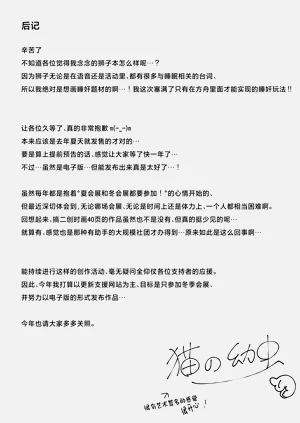 后记
辛苦了
不知道各位觉得我念念的狮子本怎么样呢…?
因为狮子无论是在语音还是活动里、都有很多与睡眠相关的台词、
所以我绝对是想画睡奸题材的啊…!我这次塞满了只有在方舟里面才能实现的睡奸玩法!!
让各位久等了、真的非常抱歉 m(-_-)m
本来应该是去年夏天就发售的才对的…
要是算上提前预告的话、感觉让大家等了快一年了…
不过…虽然是电子版…但能发布出来真是太好了…
虽然每年都是抱着"夏会展和冬会展都要参加!"的心情开始的、
但最近深切体会到、无论哪场会展、无论是时间上还是体力上、一个人都相当困难啊。
回想起来、搞二创时画40页的作品虽然也不是没有、但真的挺少见的呢…
就算有、感觉也是那种有助手的大规模社团才办得到…原来如此是这么回事啊…
能持续进行这样的创作活动、毫无疑问全仰仗各位支持者的应援。
因此、今年我打算以更新支援网站为主、目标是只参加冬季会展、
并努力以电子版的形式发布作品…
今年也请大家多多关照。
猫の幼虫
很有艺术签名的感觉
很开心!